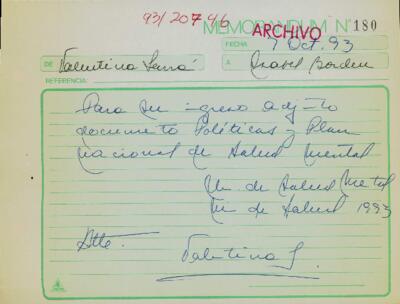 93/20746
MEMORANDUM Nº 180
ARCHIVO
FECHA 7 Oct. 93
DE Valentina Serra
A Isabel Borden
REFERENCIA:
Para su ingreso adjunto
documento Políticas y Plan
nacional de salud mental
Un. de Salud Mental
Min de Salud 1993
Atte.
Valentina S.